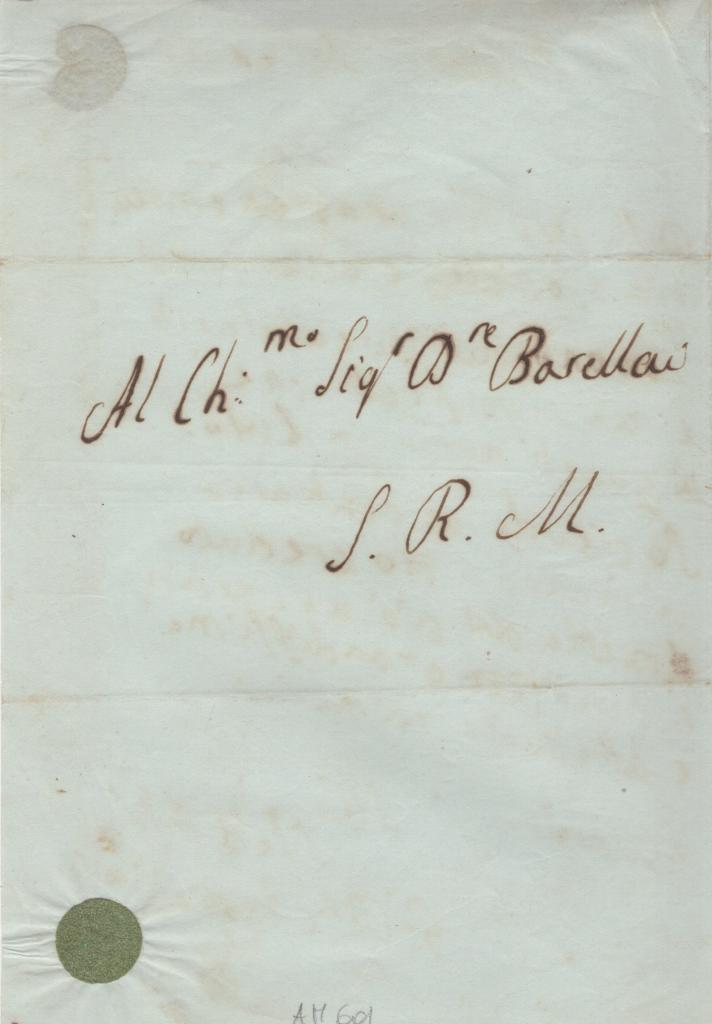 Al Ch:mo Sigr Dre Barellai
S. R. M.
AM 601